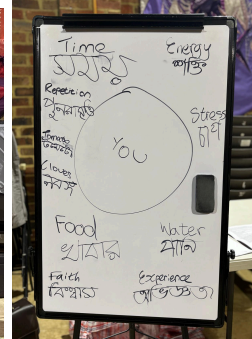 Time
সময়
Energy
শক্তি
Repetition
পুনরাবৃত্তি
Stress
চাপ
YOU
Cloves
লবঙ্গ
Food
খাবার
Water
পানি
Faith
বিশ্বাস
Experience
অভিজ্ঞতা